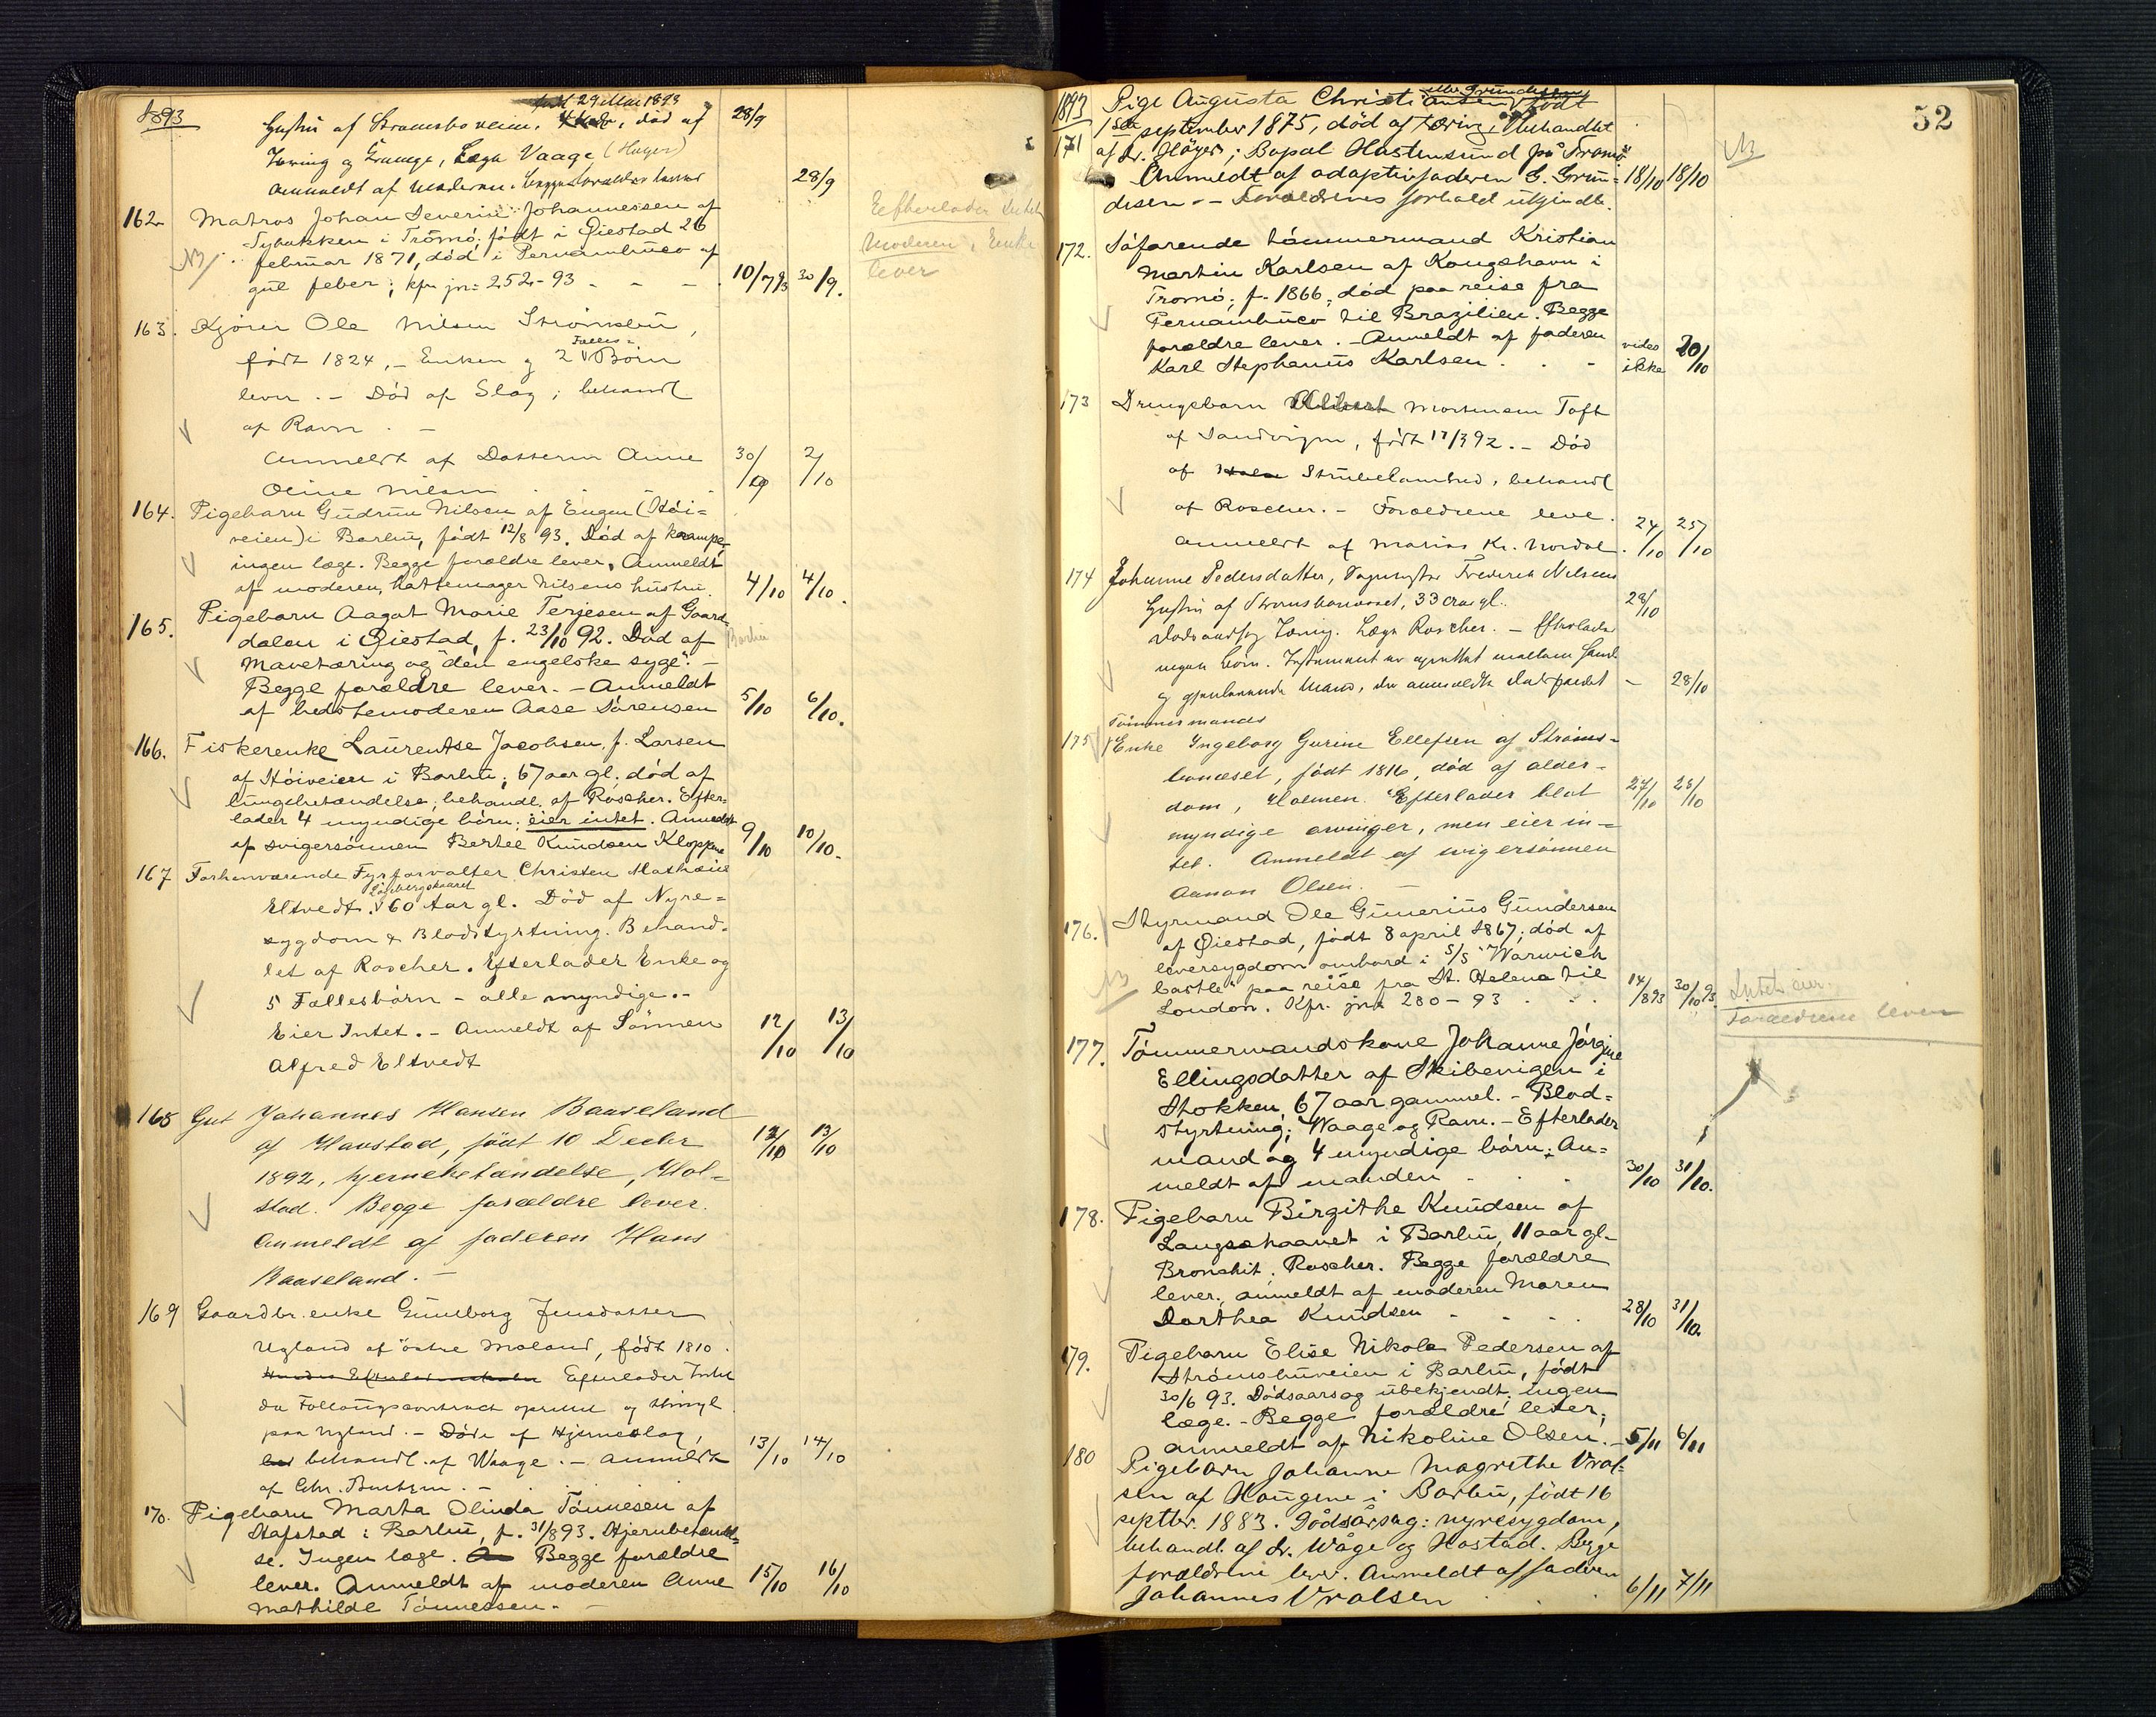 1893
født 29 Mai 1893
Hustru af Strømsboveien, død af 28/9
Tæring og Krampe, Læge Vaage (Høyer)
Anmeldt af Moderen. Begge forældre lever 28/9
162. Matros Johan Severin Johannessen af
Sybakken i Tromø, født i Øiestad 26
NB/ februar 1871, død i Pernambuco af
gul feber; kfr. jr. 252-93 - - - 10/7 93 30/9.
Efterlader Intet
Moderen, Enke
lever
163. Kjører Ole Nilsen Strømsbu,
Fælles-
født 1824, - Enken og 2 Børn
lever. - Død af Slag; behandl
af Ravn. -
Anmeldt af Datteren Anne 30/9 2/10
Oline Nilsen
164. Pigebarn Gudrun Nilsen af Engen (Høi=
veien) i Barbu, født 12/8 93. Død af krampe,
ingen læge. Begge forældre lever. Anmeldt
af moderen, hattemager Nilsens hustru. 4/10 4/10.
165. Pigebarn Aagot Marie Terjesen af Gaard-
dalen i Øiestad, f. 23/10 92. Død af Barbu
Mavetæring og "den engelske syge". -
Begge forældre lever. - Anmeldt
af bedstemoderen Aase Sørensen 5/10 6/10.
166. Fiskerenke Laurentse Jacobsen, f. Larsen
af Høiveien i Barbu, 67 aar gl. død af
lungebetændelse; behandl. af Roscher. Efter-
lader 4 myndige børn; eier intet. Anmeldt
af svigersønnen Bertel Knudsen Kloppene 9/10 10/10.
167 Forhenværende Fyrforvalter Christen Mathæus
Langbergskaaret
Eltvedt. 60 Aar gl. Død af Nyre=
sygdom & Blodstyrtning. Behand-
let af Roscher. Efterlader Enke og
5 Fællesbørn - alle myndige. -
Eier Intet. - Anmeldt af Sønnen 12/10 13/10
Alfred Eltvedt
168 Gut Johannes Hansen Baaseland
af Haustad, født 10 Decbr 12/10 13/10
1892, hjernebetændelse, Hol-
stad. Begge forældre lever.
Anmeldt af faderen Hans
Baaseland. -
169 Gaardbr. enke Gunborg Jensdatter
Ugland af østre Moland, født 1810.
Efterlader Intet
da Follaugscontract oprettet og thinglt
paa Ugland. - Døde af Hjerneslag,
behandl. af Waage. - Anmeldt 13/10 14/10
af Chr.
170. Pigebarn Marta Olinda Tønnesen af
Stafstad i Barbu, f. 31/8 93. Hjernebetændel=
se. Ingen læge. Begge forældre
lever. Anmeldt af moderen Anne 15/10 16/10
Mathilde Tønnessen. -
52
1893 Pige Augusta Christiansen eller Grundesen født
171 1ste september 1875, død af tæring, ubehandlet
af dr. Høyer; Bopæl Hastensund på Tromø NB
Anmeldt af adoptivfaderen G. Grun= 18/10 18/10
desen - Forældrenes forhold ukjendt.
172. Søfarende tømmermand Kristian
Martin Karlsen af Kongshavn i
Tromø, f. 1866, død paa reise fra
Pernambuco til Brazilien. Begge
forældre lever. - Anmeldt af faderen vides 20/10
Karl Stephanus Karlsen. - - ikke
173 Drengebarn Mortensen Toft
af Sandvigen, født 17/3 92. - Død
af Strubelambed, behandl
af Roscher. - Forældrene leve.
Anmeldt af Marius Kr. Nordal. 24/10 25/10
174 Johanne Pedersdatter, Frederik Nilsens
Hustru af Strømsbunæset, 33 Aar gl. 28/10
Dødsaarsag Tæring. Læge Roscher. - Efterlader
ingen børn. Testament er oprettet mellem hende
og gjenlevende Mand, der anmeldte dødsfaldet - 28/10
Tømmermands
175 Enke Ingeborg Gurine Ellefsen af Strøms-
bunæset, født 1816, død af alder-
dom, Holmen. Efterlader blot 27/10 28/10
myndige arvinger, men eier in-
tet. Anmeldt af svigersønnen
Aanon Olsen. -
176. Styrmand Ole Gunerius Gundersen
af Øiestad, født 8 april 1867; død af
leversygdom ombord i S/S "Warwich
NB castle" paa reise fra St. Helena til 14/8 93 30/10 93 Intet eier.
London. Kfr. jr. 280-93 Forældrene lever
177. Tømmermandskone Johanne Jørgine
Ellingsdatter af Skibevigen i
Stokken, 67 aar gammel. - Blod=
styrtning; Waage og Ravn. - Efterlader
mand og 4 myndige børn; An=
meldt af manden 30/10 31/10.
178. Pigebarn Birgithe Knudsen af
Langsæhaavet i Barbu, 11 aar gl.
Bronchit; Roscher. Begge forældre
lever; anmeldt af moderen Maren
Dorthea Knudsen - - - 28/10 31/10.
179. Pigebarn Elise Nikola Pedersen af
Strømsbuveien i Barbu, født
30/6 93. Dødsaarsag ubekjendt, ingen
læge. - Begge forældre lever;
anmeldt af Nikoline Olsen. - 5/11 6/11
180 Pigebarn Johanne Magrethe Vral-
sen af Haugene i Barbu, født 16
septbr. 1883. Dødsårsag: nyresygdom,
behandl. af dr. Wåge og Hostad. Begge
forældrene lever. Anmeldt af faderen
Johannes Vralsen 6/11 7/11